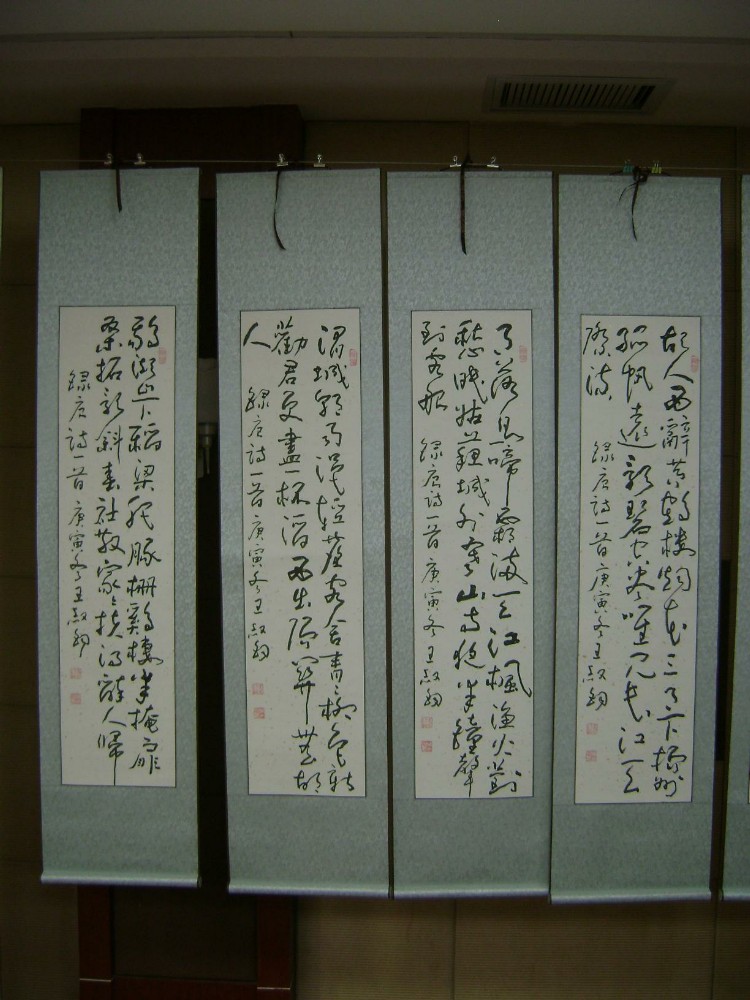 故人西辭黄鶴樓煙花三月下揚州
孤帆遠影碧空盡唯見長江天
際流
録唐詩一首庚寅冬王
月落烏啼霜滿天江楓漁火對
愁眠姑蘇城外寒山寺夜半鐘聲
到客船
録唐詩一首庚寅冬王
渭城朝雨浥輕塵客舍青々柳色新
勸君更盡一杯酒西出陽關無故
人
録唐詩一首庚寅冬王
鵝湖山下稻粱肥豚柵雞棲半掩扉
桑柘影斜春社散家々扶得醉人歸
録唐詩一首庚寅冬王